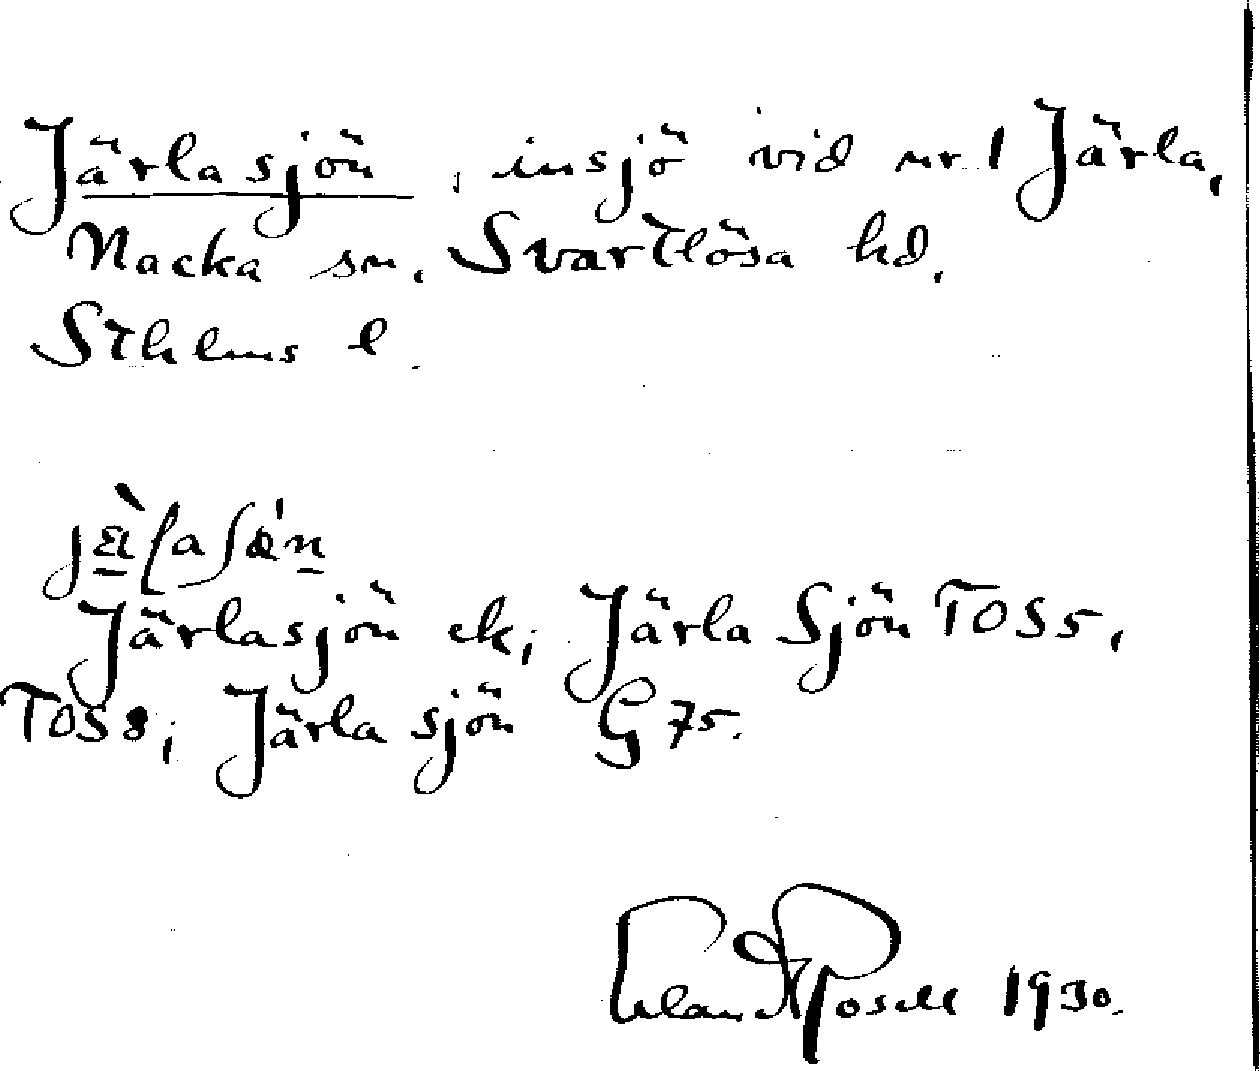 Järlasjön, insjö vid nr 1 Järla,
Nacka sn, Svartlösa hd,
Sthlms l.
Järlasjön ek; Järla Sjön TOS5,
TOS8; Järla sjön G75.
Erland Rosell 1930.